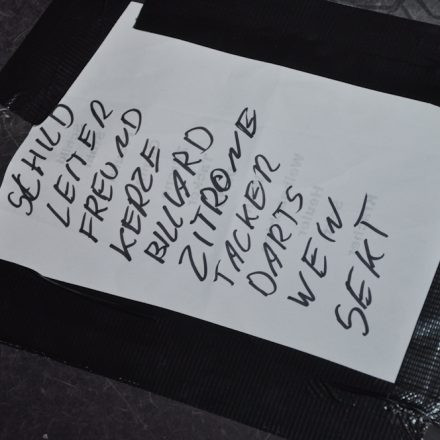 SCHILD
LEITER
FREUND
KERZE
BILLIARD
ZITRONE
TACKER
DARTS
WEIN
SEKT